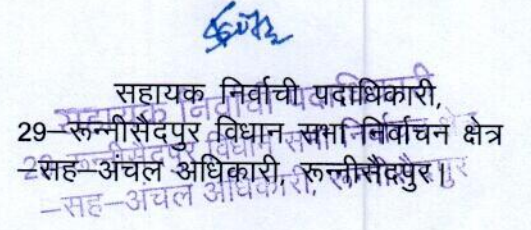 सहायक निर्वाची पदाधिकारी,
29–रून्नीसैदपुर विधान सभा निर्वाचन क्षेत्र
–सह–अंचल अधिकारी, रून्नीसैदपुर।
सहायक निर्वाची पदाधिकारी
29–रून्नीसैदपुर विधान सभा निर्वाचन क्षेत्र
–सह–अंचल अधिकारी, रून्नीसैदपुर